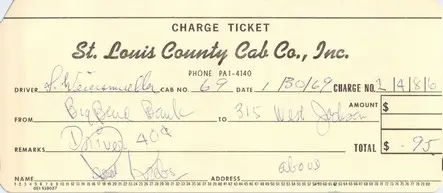 CHARGE TICKET
St. Louis County Cab Co., Inc.
PHONE PA1-4140
DRIVER CAB NO. 69 DATE 1/30/69 CHARGE NO. 1486
FROM Big Bend Bank TO 315 West AMOUNT $
REMARKS 40¢ TOTAL $ .95
NAME ADDRESS above